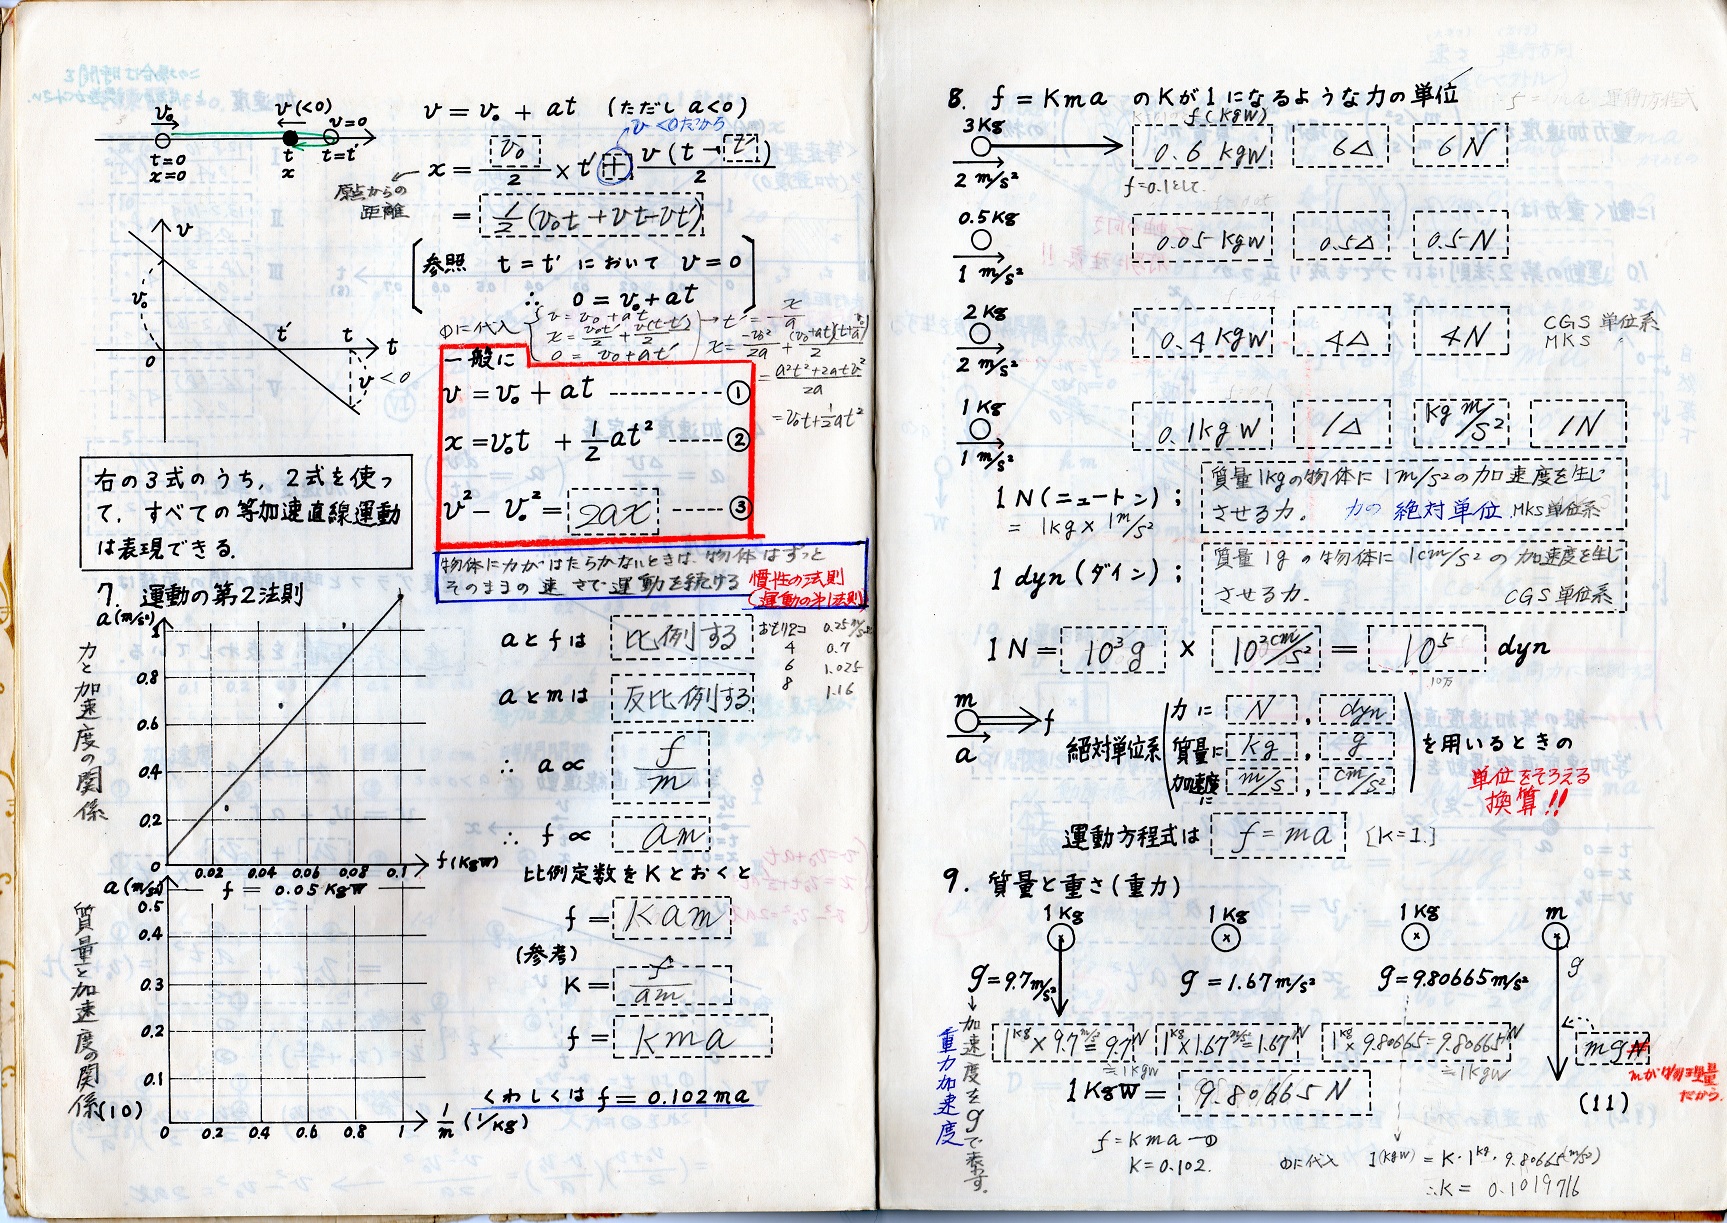 v₀
v(<0)
v=0
t=0
t
t=t'
x=0
x
v = v₀ + at (ただし a<0)
v<0だから
x = v₀/2 × t' + v(t - t')/2
原点からの
距離
= 1/2(v₀t' + vt - vt')
参照 t=t' において v=0
∴ 0 = v₀ + at
v
v₀
t'
t
t
0
v<0
①に代入
v = v₀ + at
x = v₀t'/2 + v(t-t')/2
0 = v₀ + at'
= v₀t + 1/2at²
一般に
v = v₀ + at ------- ①
x = v₀t + 1/2 at² ------ ②
v² - v₀² = 2ax ----- ③
右の3式のうち, 2式を使っ
て, すべての等加速直線運動
は表現できる.
物体に力がはたらかないときは、物体はずっと
そのままの速さで運動を続ける 慣性の法則
(運動の第1法則)
7. 運動の第2法則
a(m/s²)
1
0.8
0.6
0.4
0.2
0
0.02 0.04 0.06 0.08 0.1 f(Kgw)
力と加速度の関係
aとfは 比例する
aとmは 反比例する
おもり2コ 0.25m/s²
4 0.7
6 1.025
8 1.16
∴ a ∝ f/m
∴ f ∝ am
比例定数をKとおくと
f = Kam
(参考)
K = f/am
f = kma
くわしくは f = 0.102ma
a(m/s²)
f = 0.05 Kgw
0.5
0.4
0.3
0.2
0.1
0 0.2 0.4 0.6 0.8 1 1/m (1/Kg)
質量と加速度の関係
(10)
8. f = Kma のKが1になるような力の単位
f(KgW)
3Kg
2 m/s²
0.6 kgw 6△ 6N
f=0.1として.
0.5Kg
1 m/s²
0.05 kgw 0.5△ 0.5N
2Kg
2 m/s²
0.4 kgw 4△ 4N
CGS 単位系
MKS 〃
1Kg
1 m/s²
0.1kgw 1△ kg m/s² 1N
1N(ニュートン); 質量1kgの物体に1m/s²の加速度を生じ
= 1kg × 1m/s² させる力. 力の絶対単位 MKS単位系
1 dyn(ダイン); 質量1gの物体に1cm/s²の加速度を生じ
させる力. CGS単位系
1N = 10³g × 10²cm/s² = 10⁵ dyn
10万
m
f
a
絶対単位系
力に N, dyn
質量に kg, g
加速度に m/s, cm/s²
を用いるときの
単位をそろえる
換算!!
運動方程式は f = ma [K=1.]
9. 質量と重さ(重力)
1Kg 1Kg 1Kg m
g=9.7m/s² g=1.67m/s² g=9.80665m/s² g
加速度をgで表す.
重力加速度
1kg×9.7m/s²=9.7N 1kg×1.67m/s²=1.67N 1kg×9.80665=9.80665N mgN
≒1kgw =1kgw
mが物理量
だから.
1KgW = 9.80665N
(11)
f = kma ―①
K = 0.102.
①に代入 1(kgw) = K・1kg・9.80665(m/s²)
∴K = 0.1019716